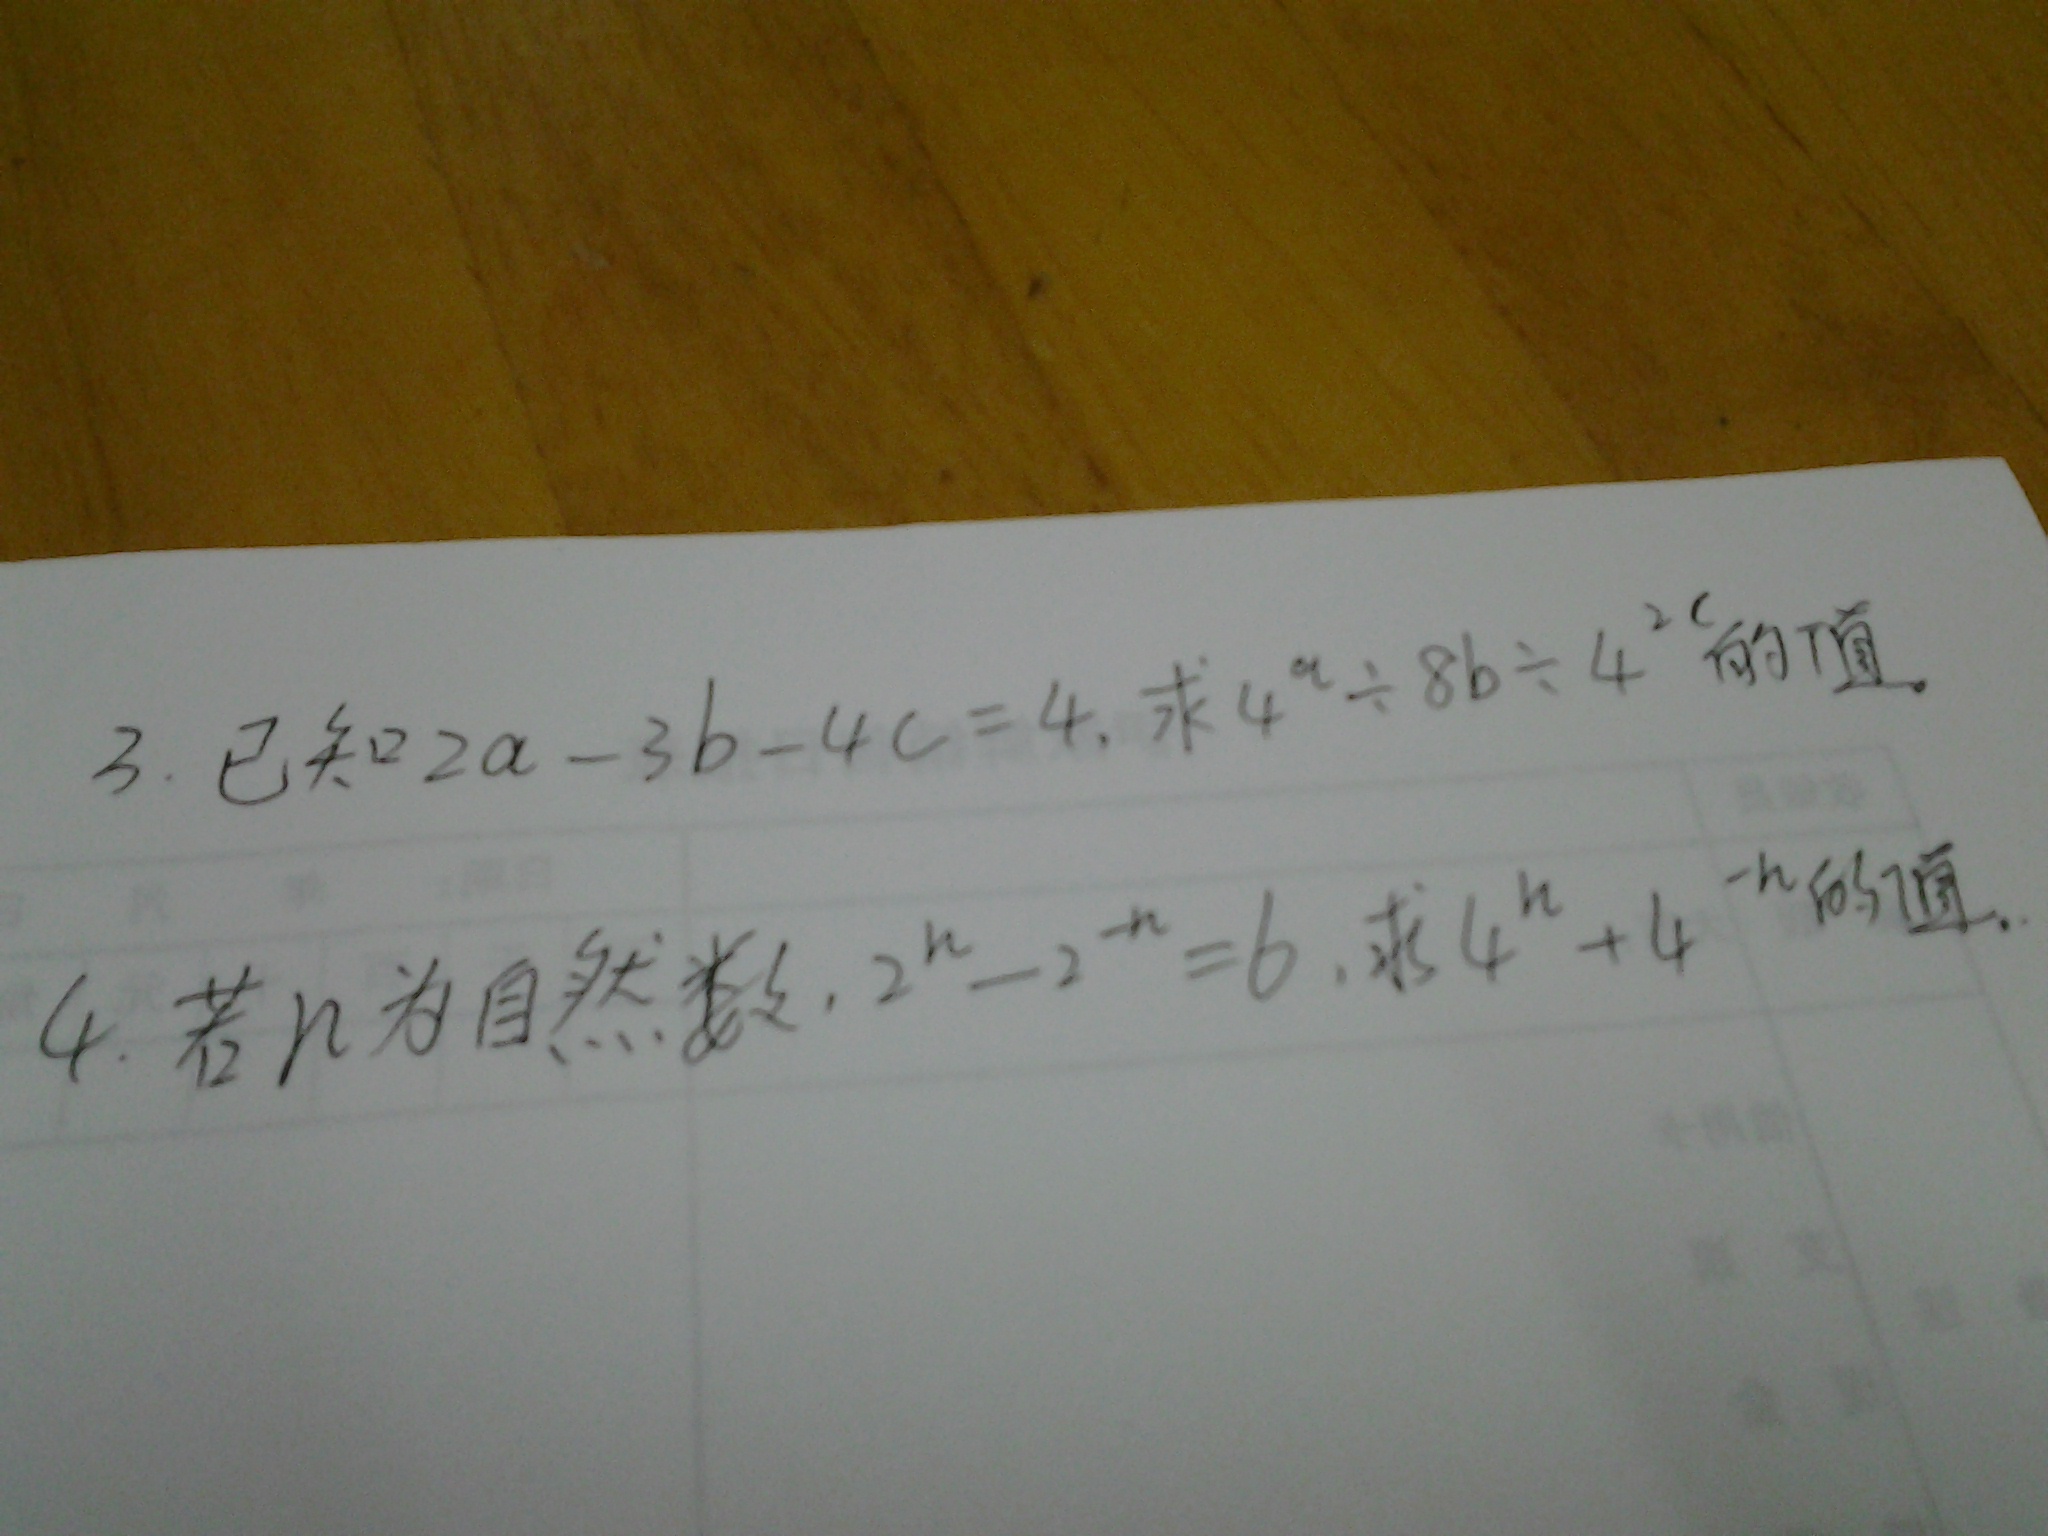 3. 已知2a-3b-4c=4.求4ᵃ÷8b÷4²ᶜ的值.
4. 若n为自然数,2ⁿ-2⁻ⁿ=6.求4ⁿ+4⁻ⁿ的值.